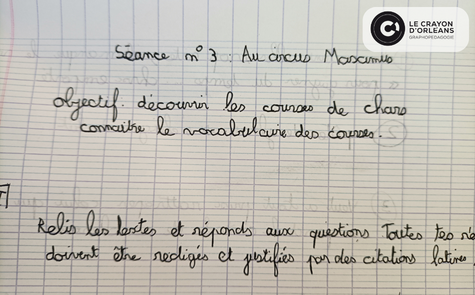 LE CRAYON
D'ORLEANS
GRAPHOPEDAGOGIE
Séance n° 3 : Au circus Maximus
objectif. découvrir les courses de chars
connaitre le vocabulaire des courses.
Relis les textes et réponds aux questions Toutes tes ré
doivent être redigés et justifiés par des citations latines